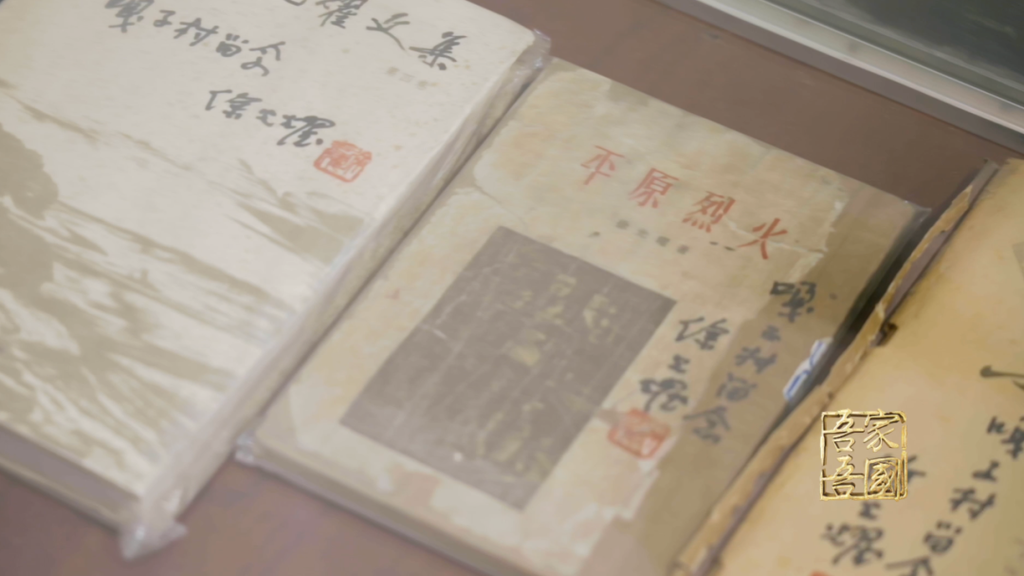 光耀文集
嘎子村留念
徐光耀
平原烈火
徐光耀著
嘎子村留念
徐光耀
嘎子村留念
光耀
吾家吾國